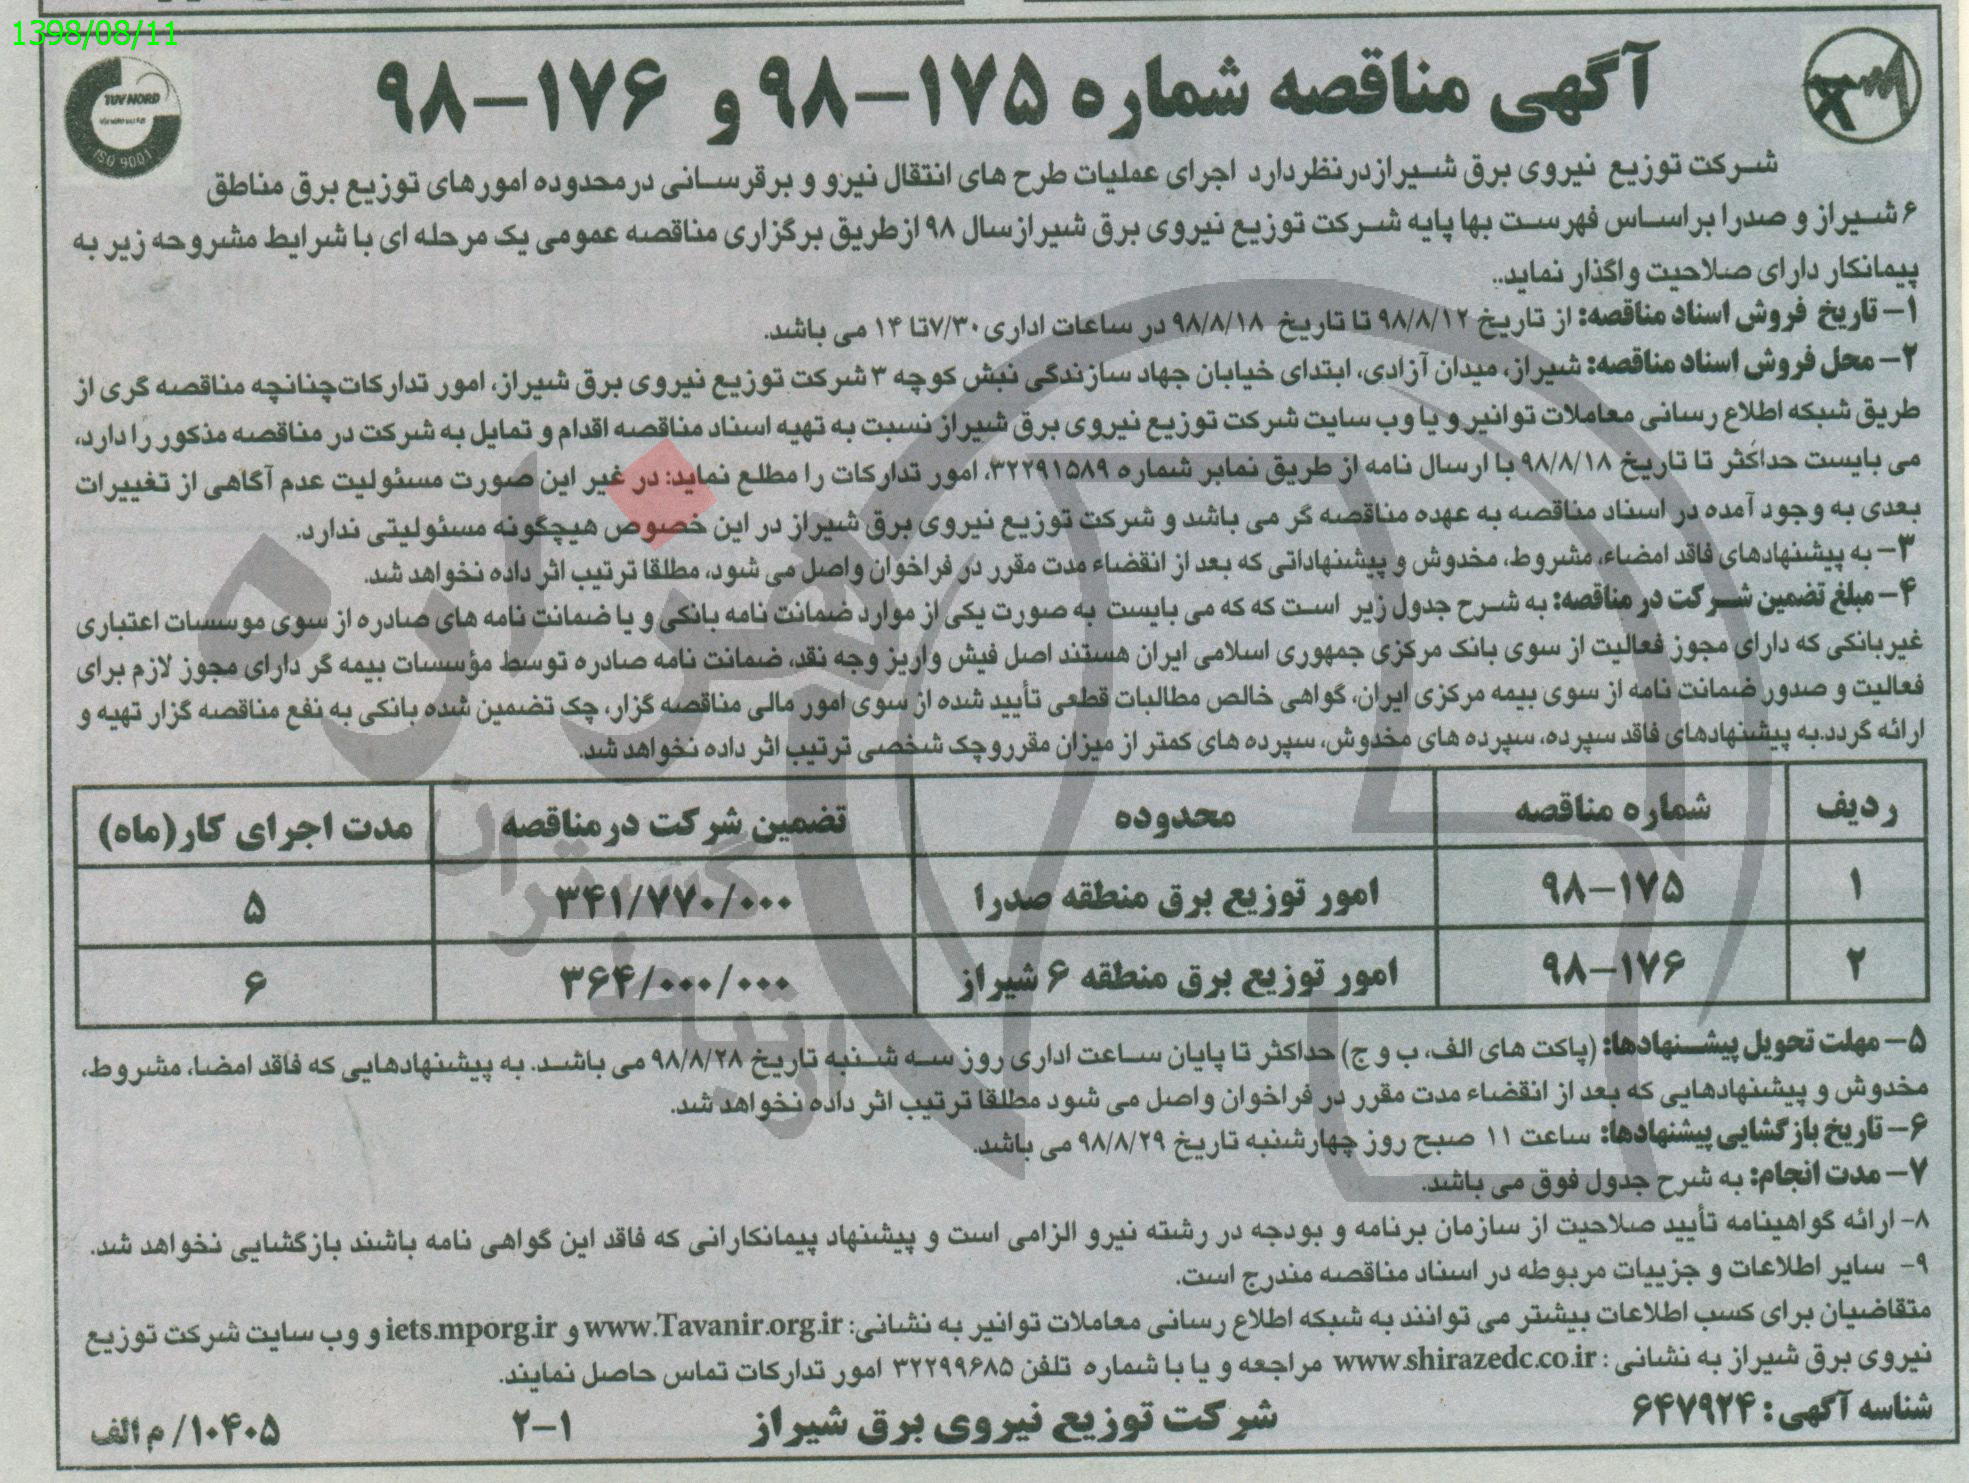 1398/08/11
آگهی مناقصه شماره ۱۷۵-۹۸ و ۱۷۶-۹۸
TUV NORD
ISO 9001
شرکت توزیع نیروی برق شیرازدرنظردارد اجرای عملیات طرح های انتقال نیرو و برقرسانی درمحدوده امورهای توزیع برق مناطق
۶ شیراز و صدرا براساس فهرست بها پایه شرکت توزیع نیروی برق شیرازسال ۹۸ ازطریق برگزاری مناقصه عمومی یک مرحله ای با شرایط مشروحه زیر به
پیمانکار دارای صلاحیت واگذار نماید..
۱- تاریخ فروش اسناد مناقصه: از تاریخ ۹۸/۸/۱۲ تا تاریخ ۹۸/۸/۱۸ در ساعات اداری ۷/۳۰تا ۱۴ می باشد.
۲- محل فروش اسناد مناقصه: شیراز، میدان آزادی، ابتدای خیابان جهاد سازندگی نبش کوچه ۳ شرکت توزیع نیروی برق شیراز، امور تدارکات‌چنانچه مناقصه گری از
طریق شبکه اطلاع رسانی معاملات توانیر و یا وب سایت شرکت توزیع نیروی برق شیراز نسبت به تهیه اسناد مناقصه اقدام و تمایل به شرکت در مناقصه مذکور را دارد،
می بایست حداکثر تا تاریخ ۹۸/۸/۱۸ با ارسال نامه از طریق نمابر شماره ۳۲۲۹۱۵۸۹، امور تدارکات را مطلع نماید: در غیر این صورت مسئولیت عدم آگاهی از تغییرات
بعدی به وجود آمده در اسناد مناقصه به عهده مناقصه گر می باشد و شرکت توزیع نیروی برق شیراز در این خصوص هیچگونه مسئولیتی ندارد.
۳- به پیشنهادهای فاقد امضاء، مشروط، مخدوش و پیشنهاداتی که بعد از انقضاء مدت مقرر در فراخوان واصل می شود، مطلقا ترتیب اثر داده نخواهد شد.
۴- مبلغ تضمین شرکت در مناقصه: به شرح جدول زیر است که که می بایست به صورت یکی از موارد ضمانت نامه بانکی و یا ضمانت نامه های صادره از سوی موسسات اعتباری
غیربانکی که دارای مجوز فعالیت از سوی بانک مرکزی جمهوری اسلامی ایران هستند اصل فیش واریز وجه نقد، ضمانت نامه صادره توسط مؤسسات بیمه گر دارای مجوز لازم برای
فعالیت و صدور ضمانت نامه از سوی بیمه مرکزی ایران، گواهی خالص مطالبات قطعی تأیید شده از سوی امور مالی مناقصه گزار، چک تضمین شده بانکی به نفع مناقصه گزار تهیه و
ارائه گردد.به پیشنهادهای فاقد سپرده، سپرده های مخدوش، سپرده های کمتر از میزان مقرروچک شخصی ترتیب اثر داده نخواهد شد.
ردیف شماره مناقصه محدوده تضمین شرکت درمناقصه مدت اجرای کار(ماه)
۱ ۱۷۵-۹۸ امور توزیع برق منطقه صدرا ۳۴۱/۷۷۰/۰۰۰ ۵
۲ ۱۷۶-۹۸ امور توزیع برق منطقه ۶ شیراز ۳۶۴/۰۰۰/۰۰۰ ۶
۵- مهلت تحویل پیشنهادها: (پاکت های الف، ب و ج) حداکثر تا پایان ساعت اداری روز سه شنبه تاریخ ۹۸/۸/۲۸ می باشد. به پیشنهادهایی که فاقد امضا، مشروط،
مخدوش و پیشنهادهایی که بعد از انقضاء مدت مقرر در فراخوان واصل می شود مطلقا ترتیب اثر داده نخواهد شد.
۶- تاریخ بازگشایی پیشنهادها: ساعت ۱۱ صبح روز چهارشنبه تاریخ ۹۸/۸/۲۹ می باشد.
۷- مدت انجام: به شرح جدول فوق می باشد.
۸- ارائه گواهینامه تأیید صلاحیت از سازمان برنامه و بودجه در رشته نیرو الزامی است و پیشنهاد پیمانکارانی که فاقد این گواهی نامه باشند بازگشایی نخواهد شد.
۹- سایر اطلاعات و جزییات مربوطه در اسناد مناقصه مندرج است.
متقاضیان برای کسب اطلاعات بیشتر می توانند به شبکه اطلاع رسانی معاملات توانیر به نشانی: www.Tavanir.org.ir و iets.mporg.ir و وب سایت شرکت توزیع
نیروی برق شیراز به نشانی : www.shirazedc.co.ir مراجعه و یا با شماره تلفن ۳۲۲۹۹۶۸۵ امور تدارکات تماس حاصل نمایند.
شناسه آگهی: ۶۴۷۹۲۴ شرکت توزیع نیروی برق شیراز ۱-۲ ۱۰۴۰۵/ م الف